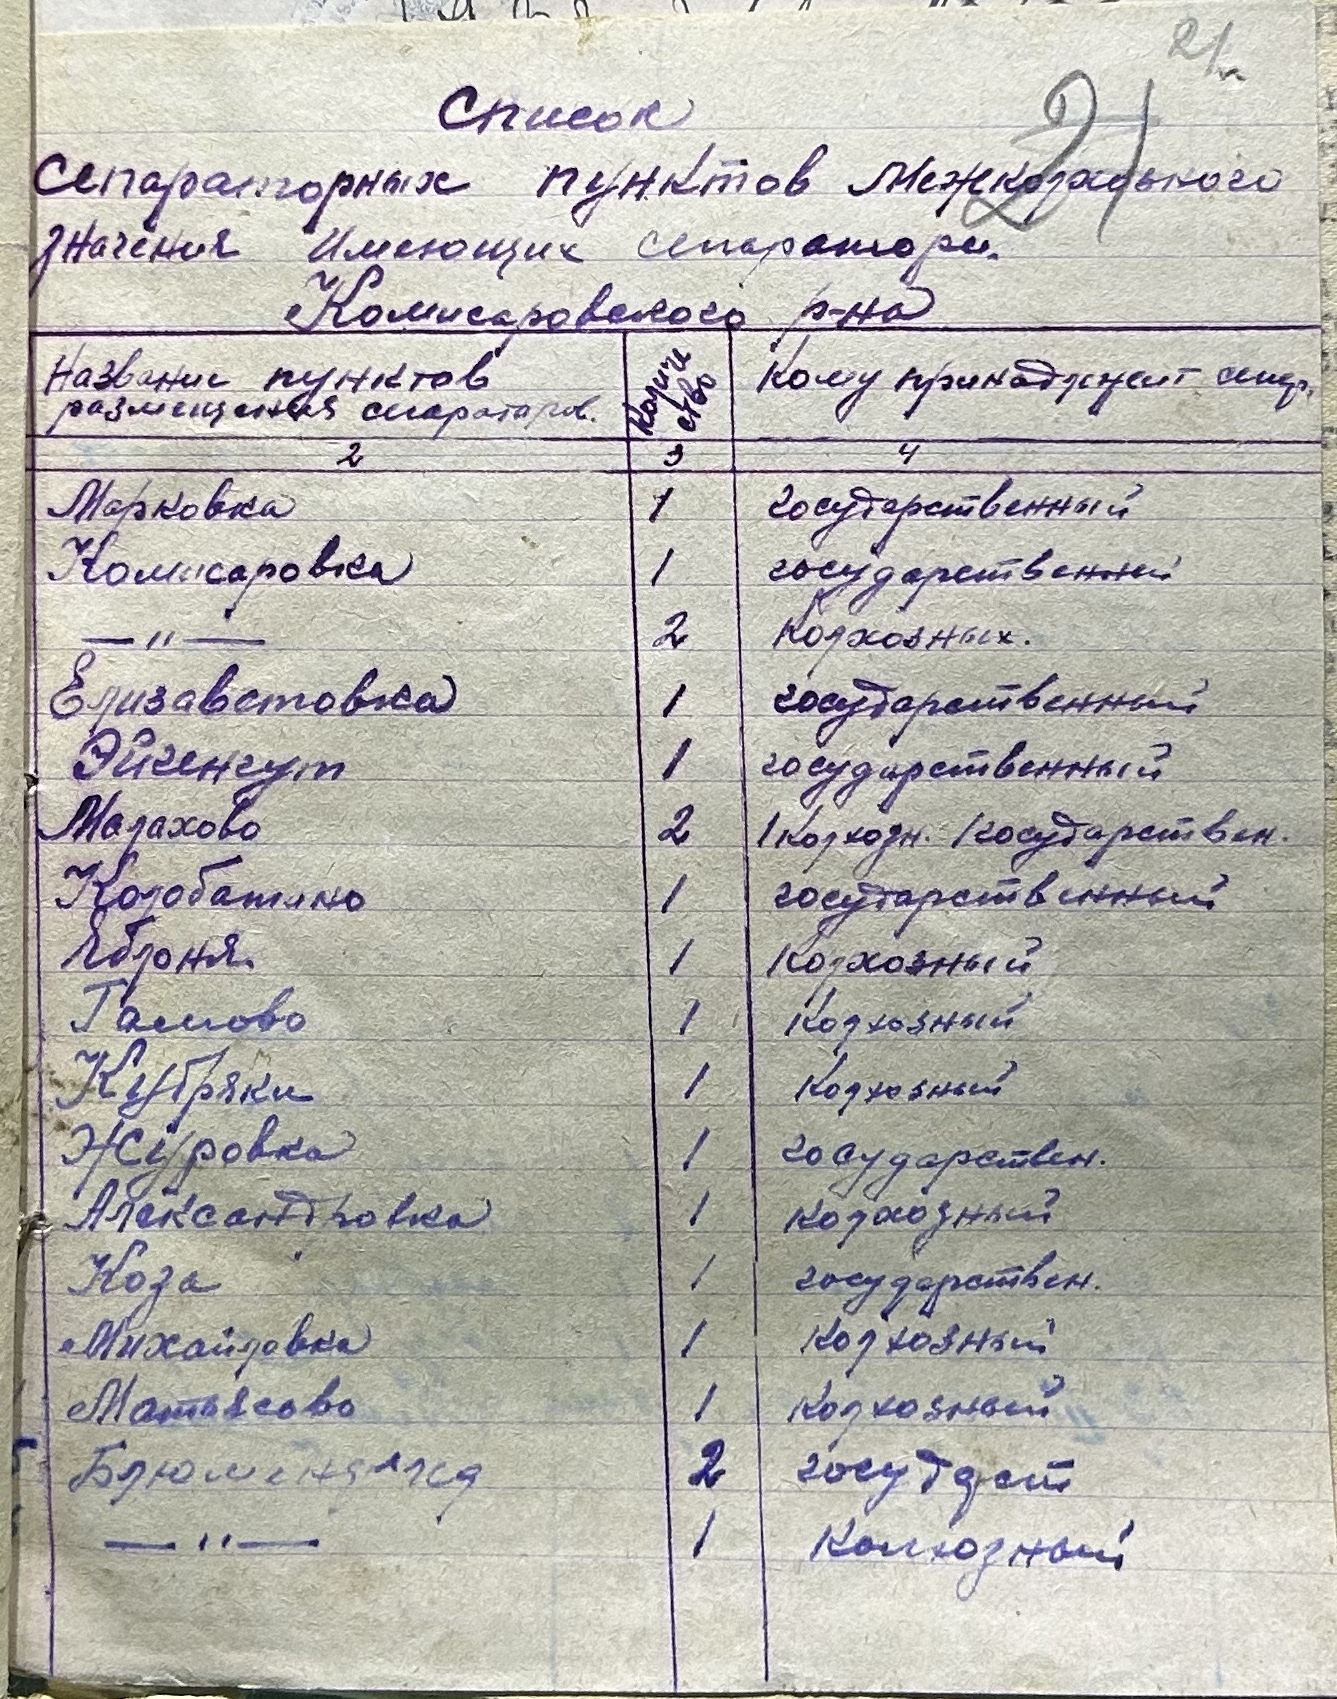 21
21
Список
сепараторных пунктов межколхозного
значения имеющих сепаратори.
Комисаровского р-на
Название пунктов размещения сепараторов. Количество Кому принадлежит сепар.
2 3 4
Марковка 1 государственный
Комисаровка 1 государственный
—"— 2 Колхозных.
Елизаветовка 1 государственный
Эйгенгут 1 государственный
Малахово 2 1 колхозн. 1 государствен.
Колобатино 1 государственный
Яблоня 1 Колхозный
Гамово 1 Колхозный
Кубряки 1 Колхозный
Журовка 1 государствен.
Александровка 1 колхозный
Коза 1 государствен.
Михайловка 1 колхозный
Матьясово 1 колхозный
Блюменталя 2 государст
—"— 1 Колхозный